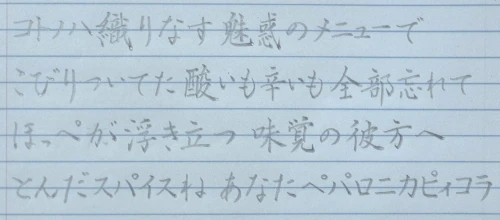 コトノハ織りなす魅惑のメニューで
こびりついてた酸いも辛いも全部忘れて
ほっぺが浮き立つ 味覚の彼方へ
とんだスパイスね あなたペパロニカピィコラ